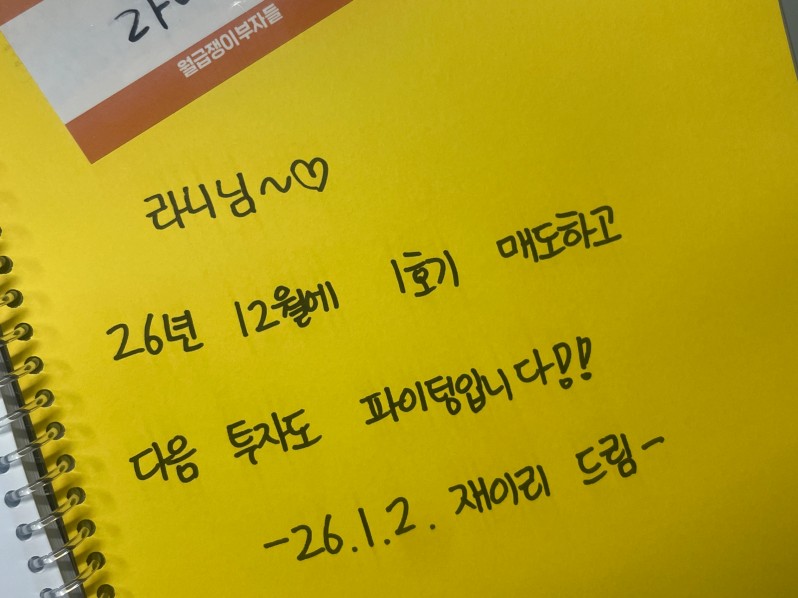 월급쟁이부자들
라니님~♡
26년 12월에 1호기 매도하고
다음 투자도 파이팅입니다!!
-26.1.2. 재이리 드림-